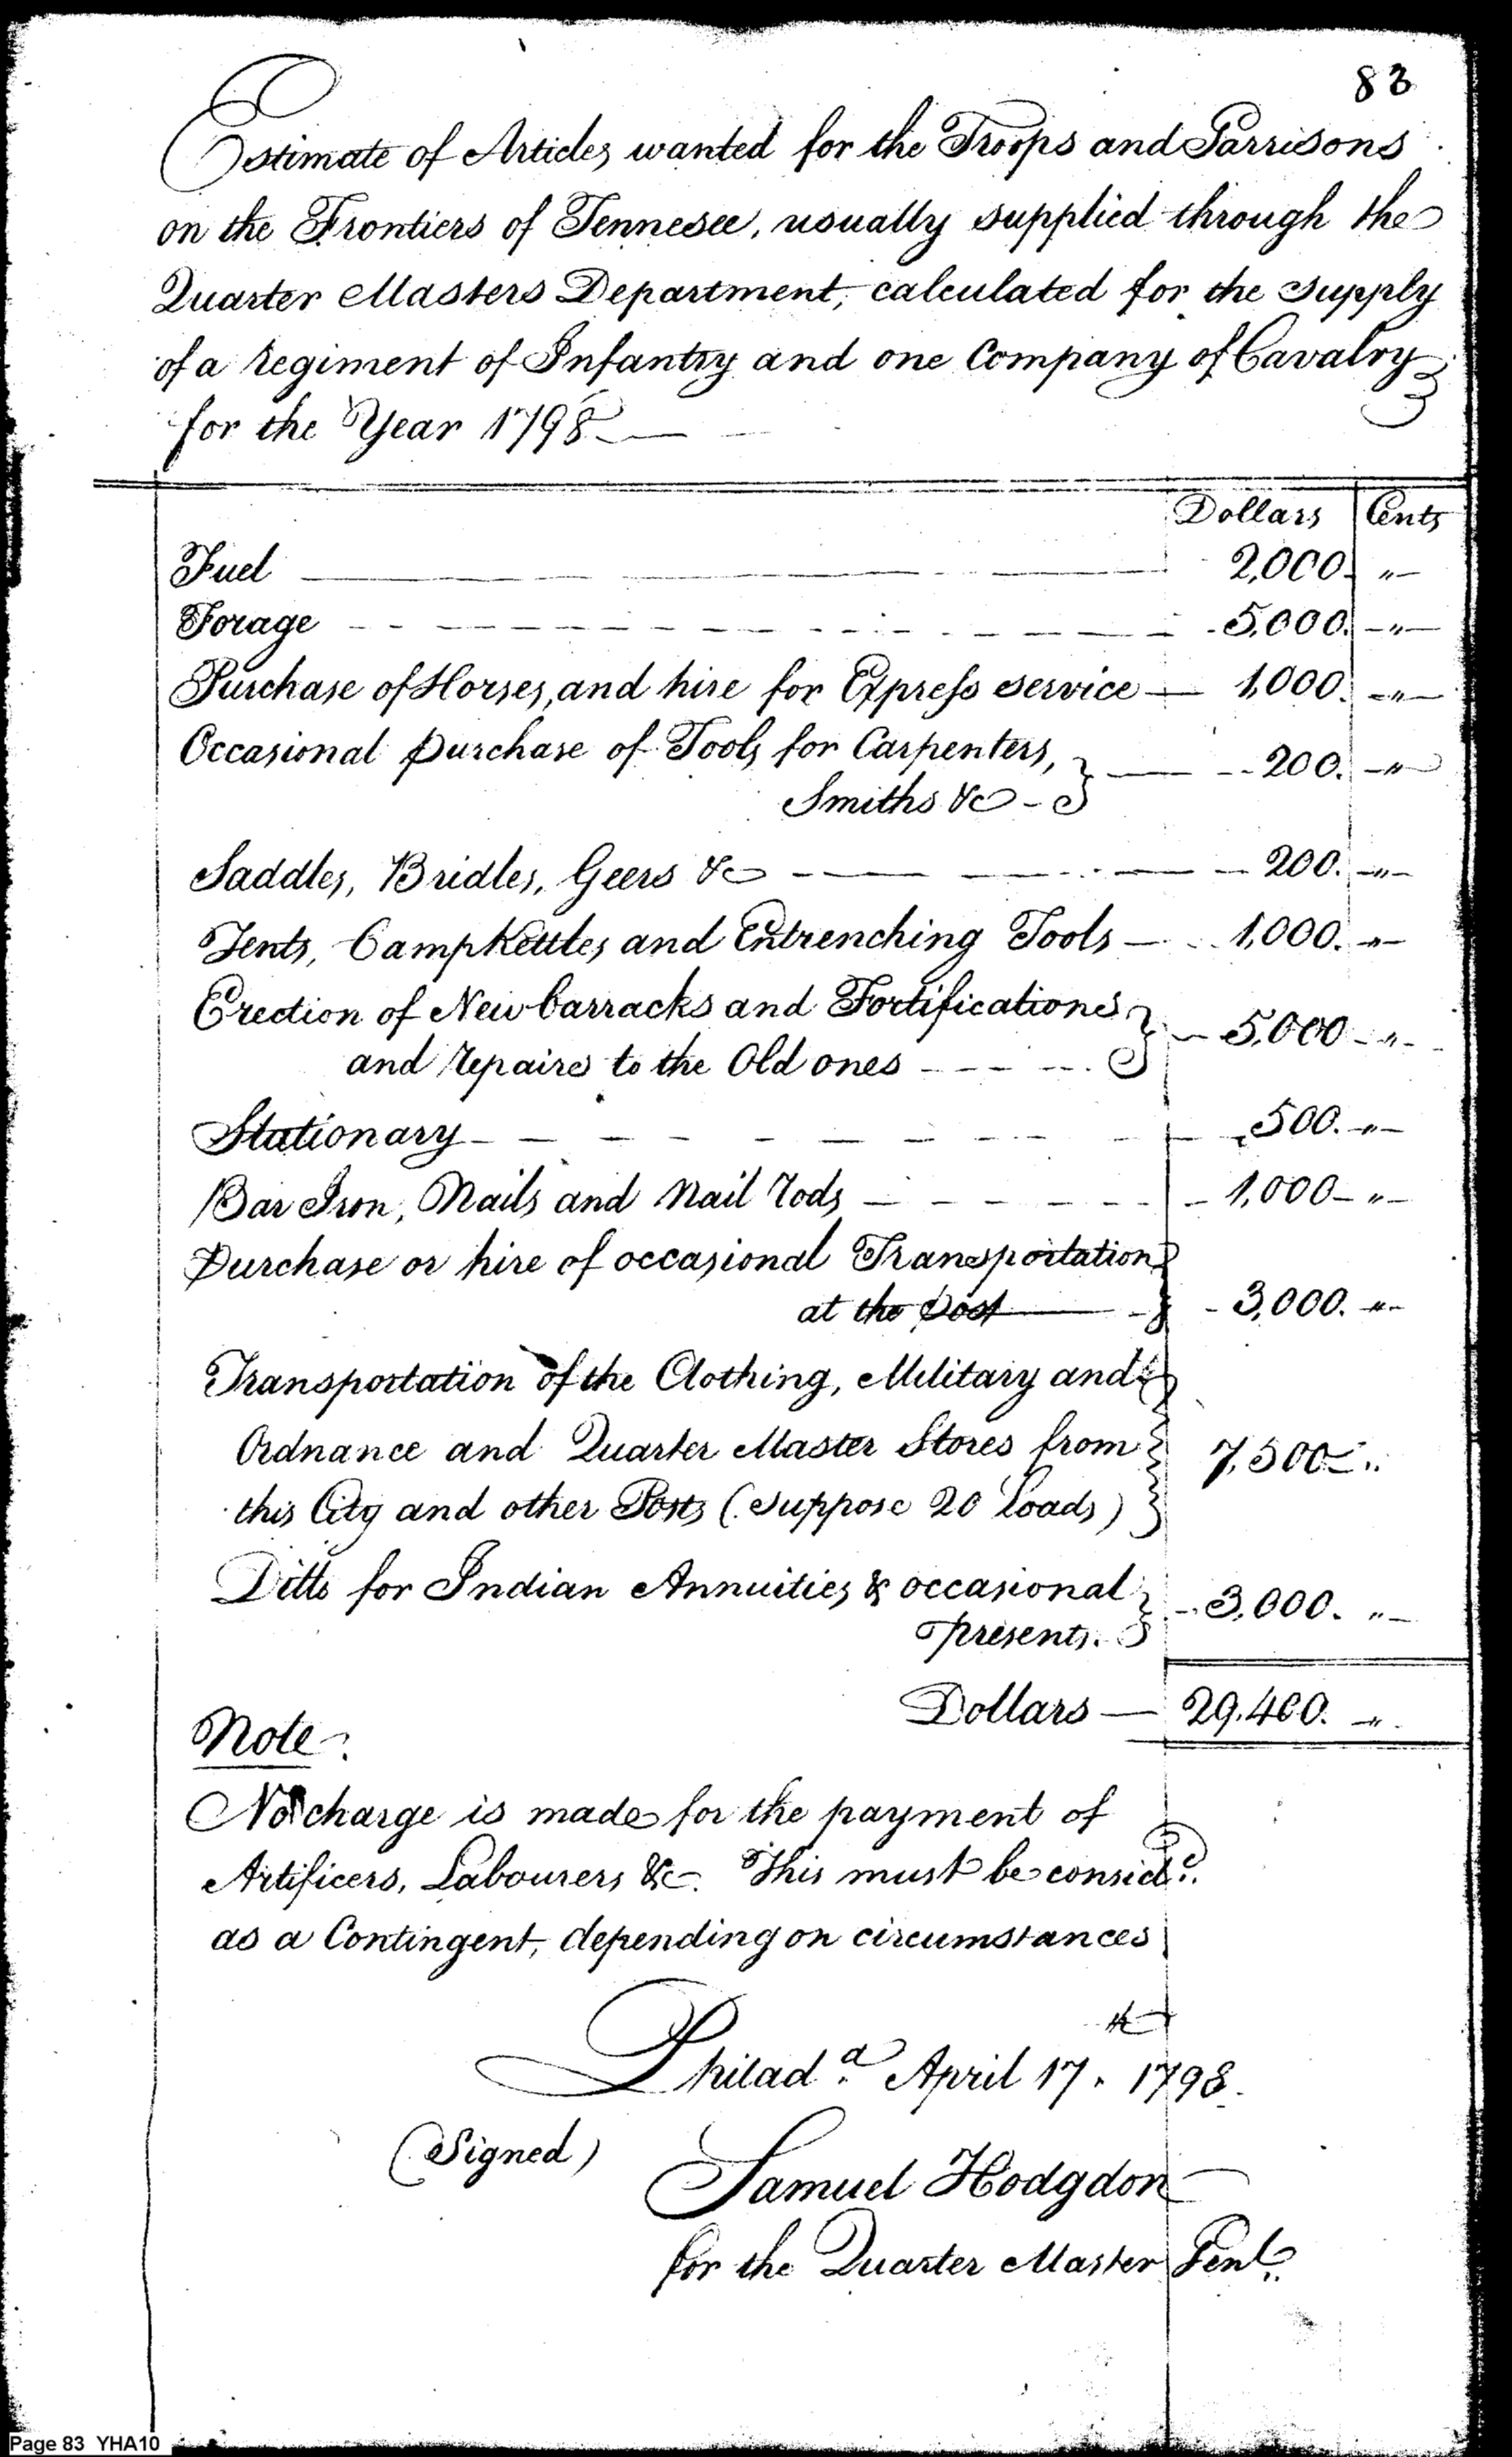 83
Estimate of Articles wanted for the Troops and Garrisons
on the Frontiers of Tennesee, usually supplied through the
Quarter Masters Department, calculated for the supply
of a regiment of Infantry and one Company of Cavalry
for the Year 1798
Dollars Cents
Fuel 2,000. "
Forage 5,000. "
Purchase of Horses, and hire for Express service 1,000. "
Occasional purchase of Tools for Carpenters,
Smiths &c 200. "
Saddles, Bridles, Geers &c 200. "
Tents, Campkettles and Entrenching Tools 1,000. "
Erection of New barracks and Fortifications
and repairs to the Old ones 5,000 "
Stationary 500. "
Bar Iron, Nails and Nail rods 1,000 "
Purchase or hire of occasional Transportation
at the post 3,000. "
Transportation of the Clothing, Military and
Ordnance and Quarter Master Stores from 7,500 "
this City and other Posts (suppose 20 loads)
Ditto for Indian Annuities & occasional
presents. 3,000. "
Dollars 29,400. "
Note.
No charge is made for the payment of
Artificers, Labourers &c. This must be consid.d
as a Contingent, depending on circumstances
Philad.a April 17.th 1798.
(Signed)
Samuel Hodgdon
for the Quarter Master Genl.
Page 83 YHA10